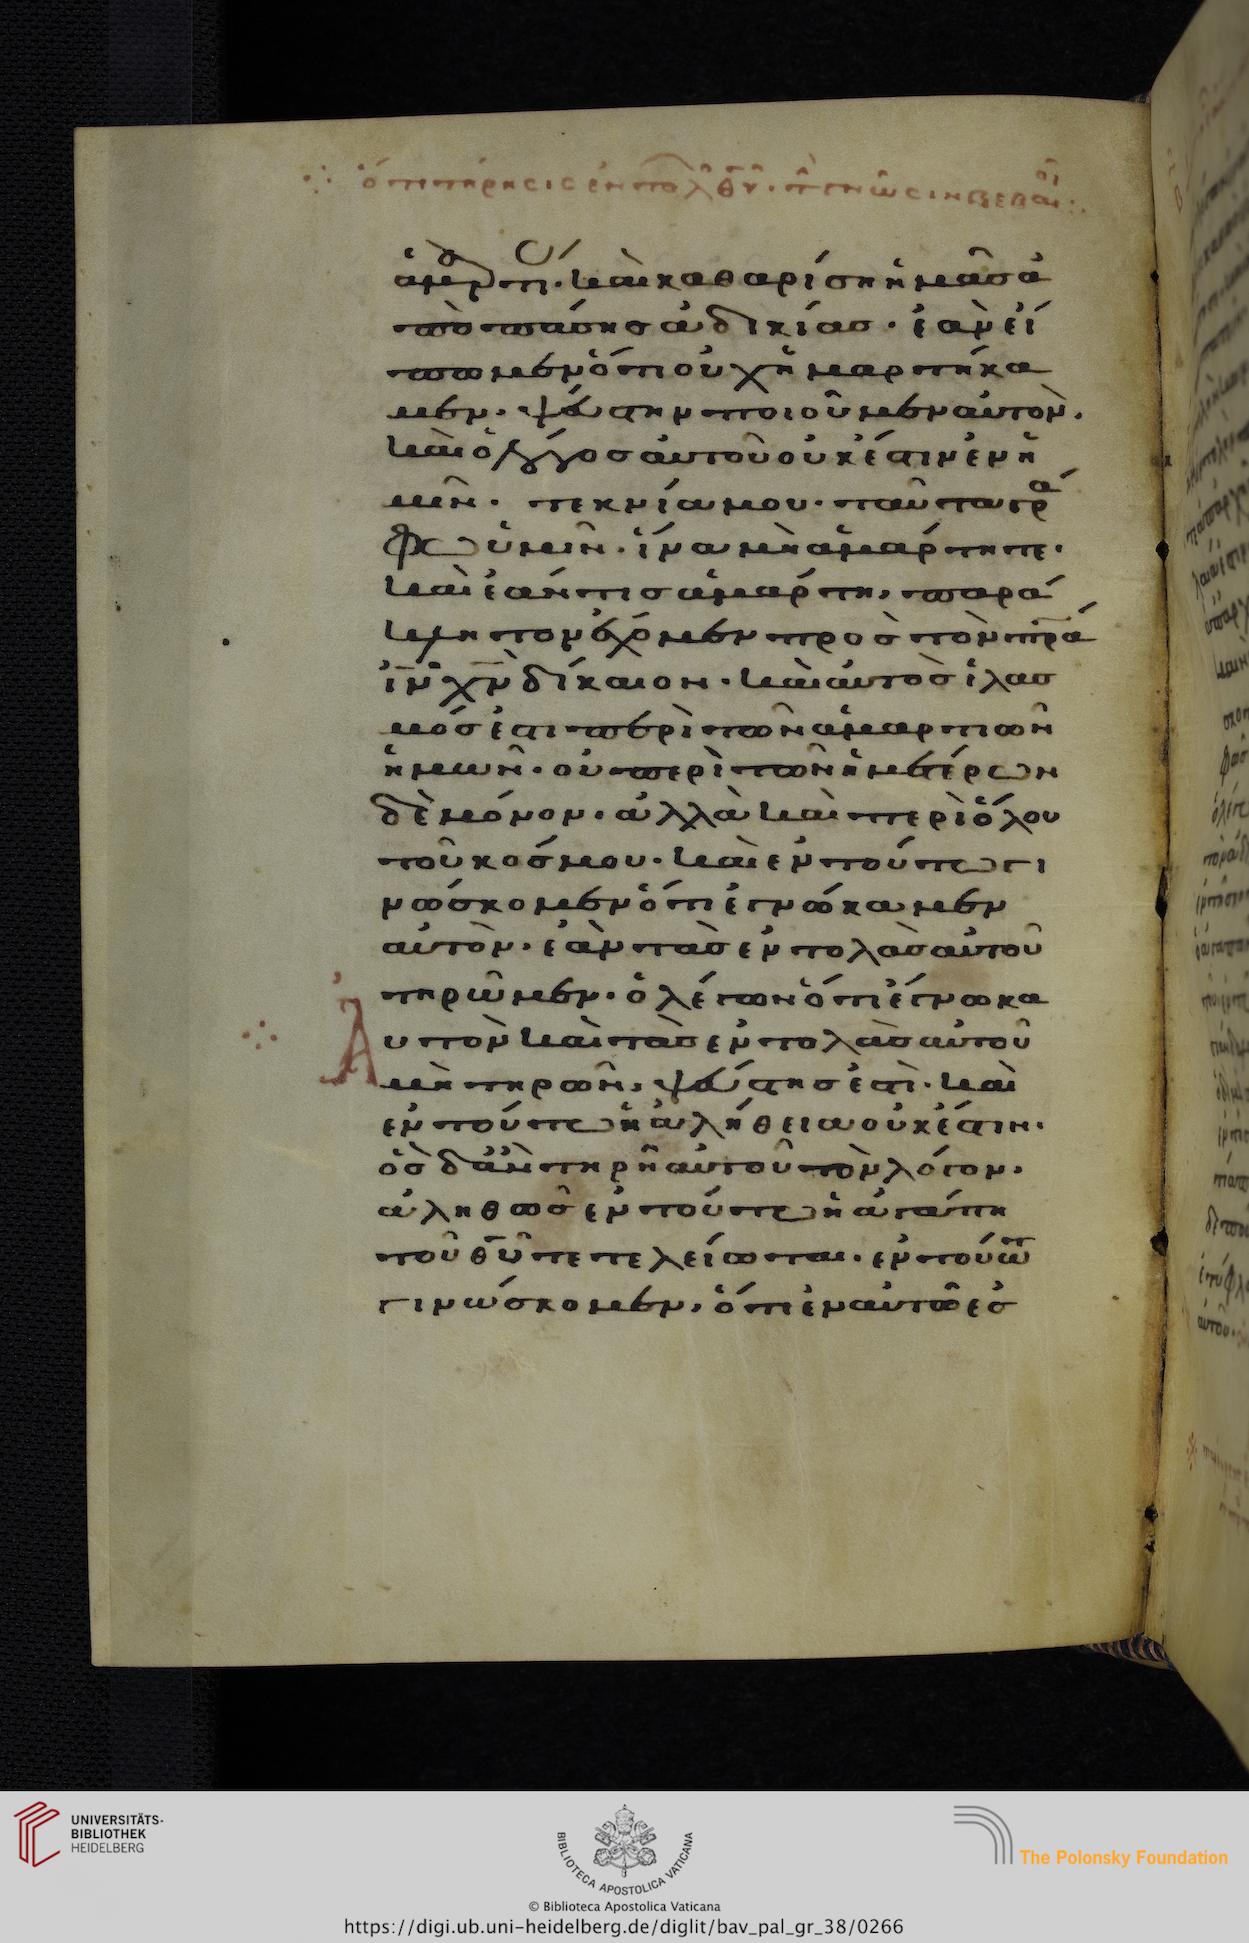 ὅτι τήρησις ἐντολ θυ τ γνῶσιν βεβαιοῖ
ἁμρτι. καὶ καθαρίση ἡμᾶσ ἀ
πὸ πάσησ ἀδικίασ. ἐὰν εἴ
πωμεν ὅτι οὐχ ἡμαρτήκα
μεν. ψεύστην ποιοῦμεν αὐτὸν.
καὶ ὁ λόγοσ αὐτοῦ οὐκ ἔστιν ἐν ἡ
μῖν. τεκνία μου. ταῦτα γρά
φω ὑμῖν. ἵνα μὴ ἁμάρτητε.
καὶ ἐάν τισ ἁμάρτη, παρά
κλητον ἔχομεν πρὸσ τὸν πρα
ιν χν δίκαιον. καὶ αὐτὸσ ἱλασ
μόσ ἐστι περὶ τῶν ἁμαρτιῶν
ἡμῶν. οὐ περὶ τῶν ἡμετέρων
δὲ μόνον. ἀλλὰ καὶ περὶ ὅλου
τοῦ κόσμου. καὶ ἐν τούτω γι
νώσκομεν ὅτι ἐγνώκαμεν
αὐτὸν. ἐὰν τὰσ ἐντολὰσ αὐτοῦ
τηρῶμεν. ὁ λέγων ὅτι ἔγνωκα
Αυτὸν καὶ τὰσ ἐντολὰσ αὐτοῦ
μὴ τηρῶν, ψεύστησ ἐστὶ. καὶ
ἐν τούτω ἡ ἀλήθεια οὐκ ἔστιν.
ὃσ δ ἂν τηρῆ αὐτοῦ τὸν λόγον.
ἀληθῶσ ἐν τούτω ἡ ἀγάπη
τοῦ θυ τετελείωται. ἐν τούτω
γινώσκομεν, ὅτι ἐν αὐτῶ ἐσ
UNIVERSITÄTS-
BIBLIOTHEK
HEIDELBERG
BIBLIOTECA APOSTOLICA VATICANA
The Polonsky Foundation
© Biblioteca Apostolica Vaticana
https://digi.ub.uni-heidelberg.de/diglit/bav_pal_gr_38/0266